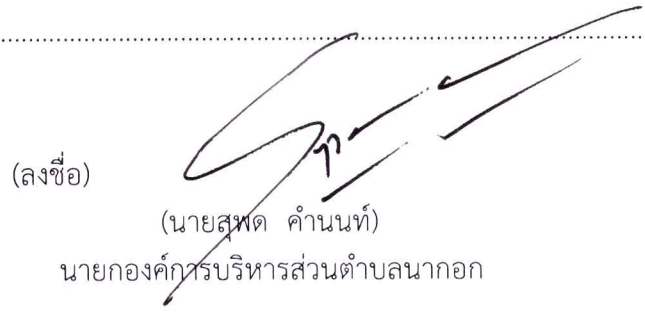 (ลงชื่อ)
(นายสุพด คำนนท์)
นายกองค์การบริหารส่วนตำบลนากอก